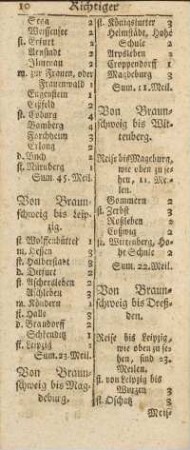 10 Richtiger
Sesa 2
Weissensee 2
st. Erfurt 2
Arnstadt 2
Ilmenau 2
m. zur Frauen, oder
Frauenwald 1
Eugenstein 1
Eißfeld 2
st. Coburg 4
Bamberg 4
Forchheim 3
Erlang 2
d. Buch 2
st. Nürnberg 1
Sum. 45. Meil.
Von Braun-
schweig bis Leip-
zig.
st. Wolffenbüttel 1
m. Hessen 3
st. Halberstadt 3
d. Ditfurt 2
st. Aschersleben 2
Aschleben 3
m. Könnern 1
st. Halle 3
d. Brandorff 2
Schkeuditz 1
st. Leipzig 1
Sum. 23. Meil.
Von Braun-
schweig bis Mag-
deburg.
st. Königslutter 3
Helmstädt, Hohe
Schule 2
Arxleben 2
Croppendorff 1
Magdeburg 3
Sum. 11. Meil.
Von Braun-
schweig bis Wit-
tenberg.
Reise bis Magdeburg,
wie oben zu se-
hen, 11. Mei-
len.
Gommern 2
st. Zerbst 3
Roßleben 2
Coßwig 2
st. Wittenberg, Ho-
he Schule 2
Sum. 22. Meil.
Von Braun-
schweig bis Dreß-
den.
Reise bis Leipzig,
wie oben zu se-
hen, sind 23.
Meilen.
st. von Leipzig bis
Wurzen 3
st. Oschatz 3
Meis-